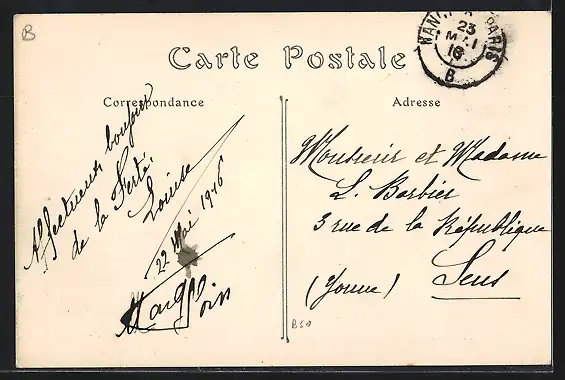 B
Carte Postale
Correspondance
Affectueux bonjour
de la Ferté.
Louise
22 Mai 1916
Marg
Adresse
PARIS
23
MAI
16
B
Monsieur et Madame
L. Barbier
3 rue de la République
(Yonne) Sens
B50